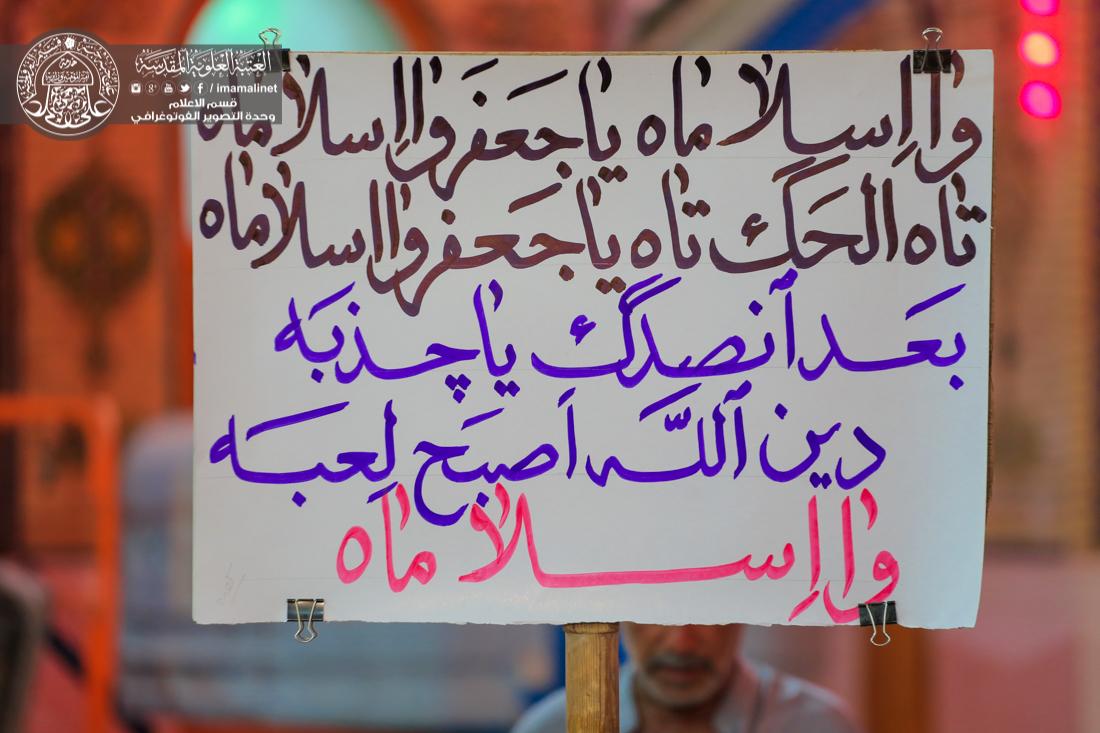 العتبة العلوية المقدسة
/ imamalinet
قسم الاعلام
وحدة التصوير الفوتوغرافي
وا إسلاماه ياجعفر وا إسلاماه
تاه الحگ تاه ياجعفر وا اسلاماه
بعد آنصدگ ياچذبه
دين آلله أصبح لعبه
وا إسلاماه